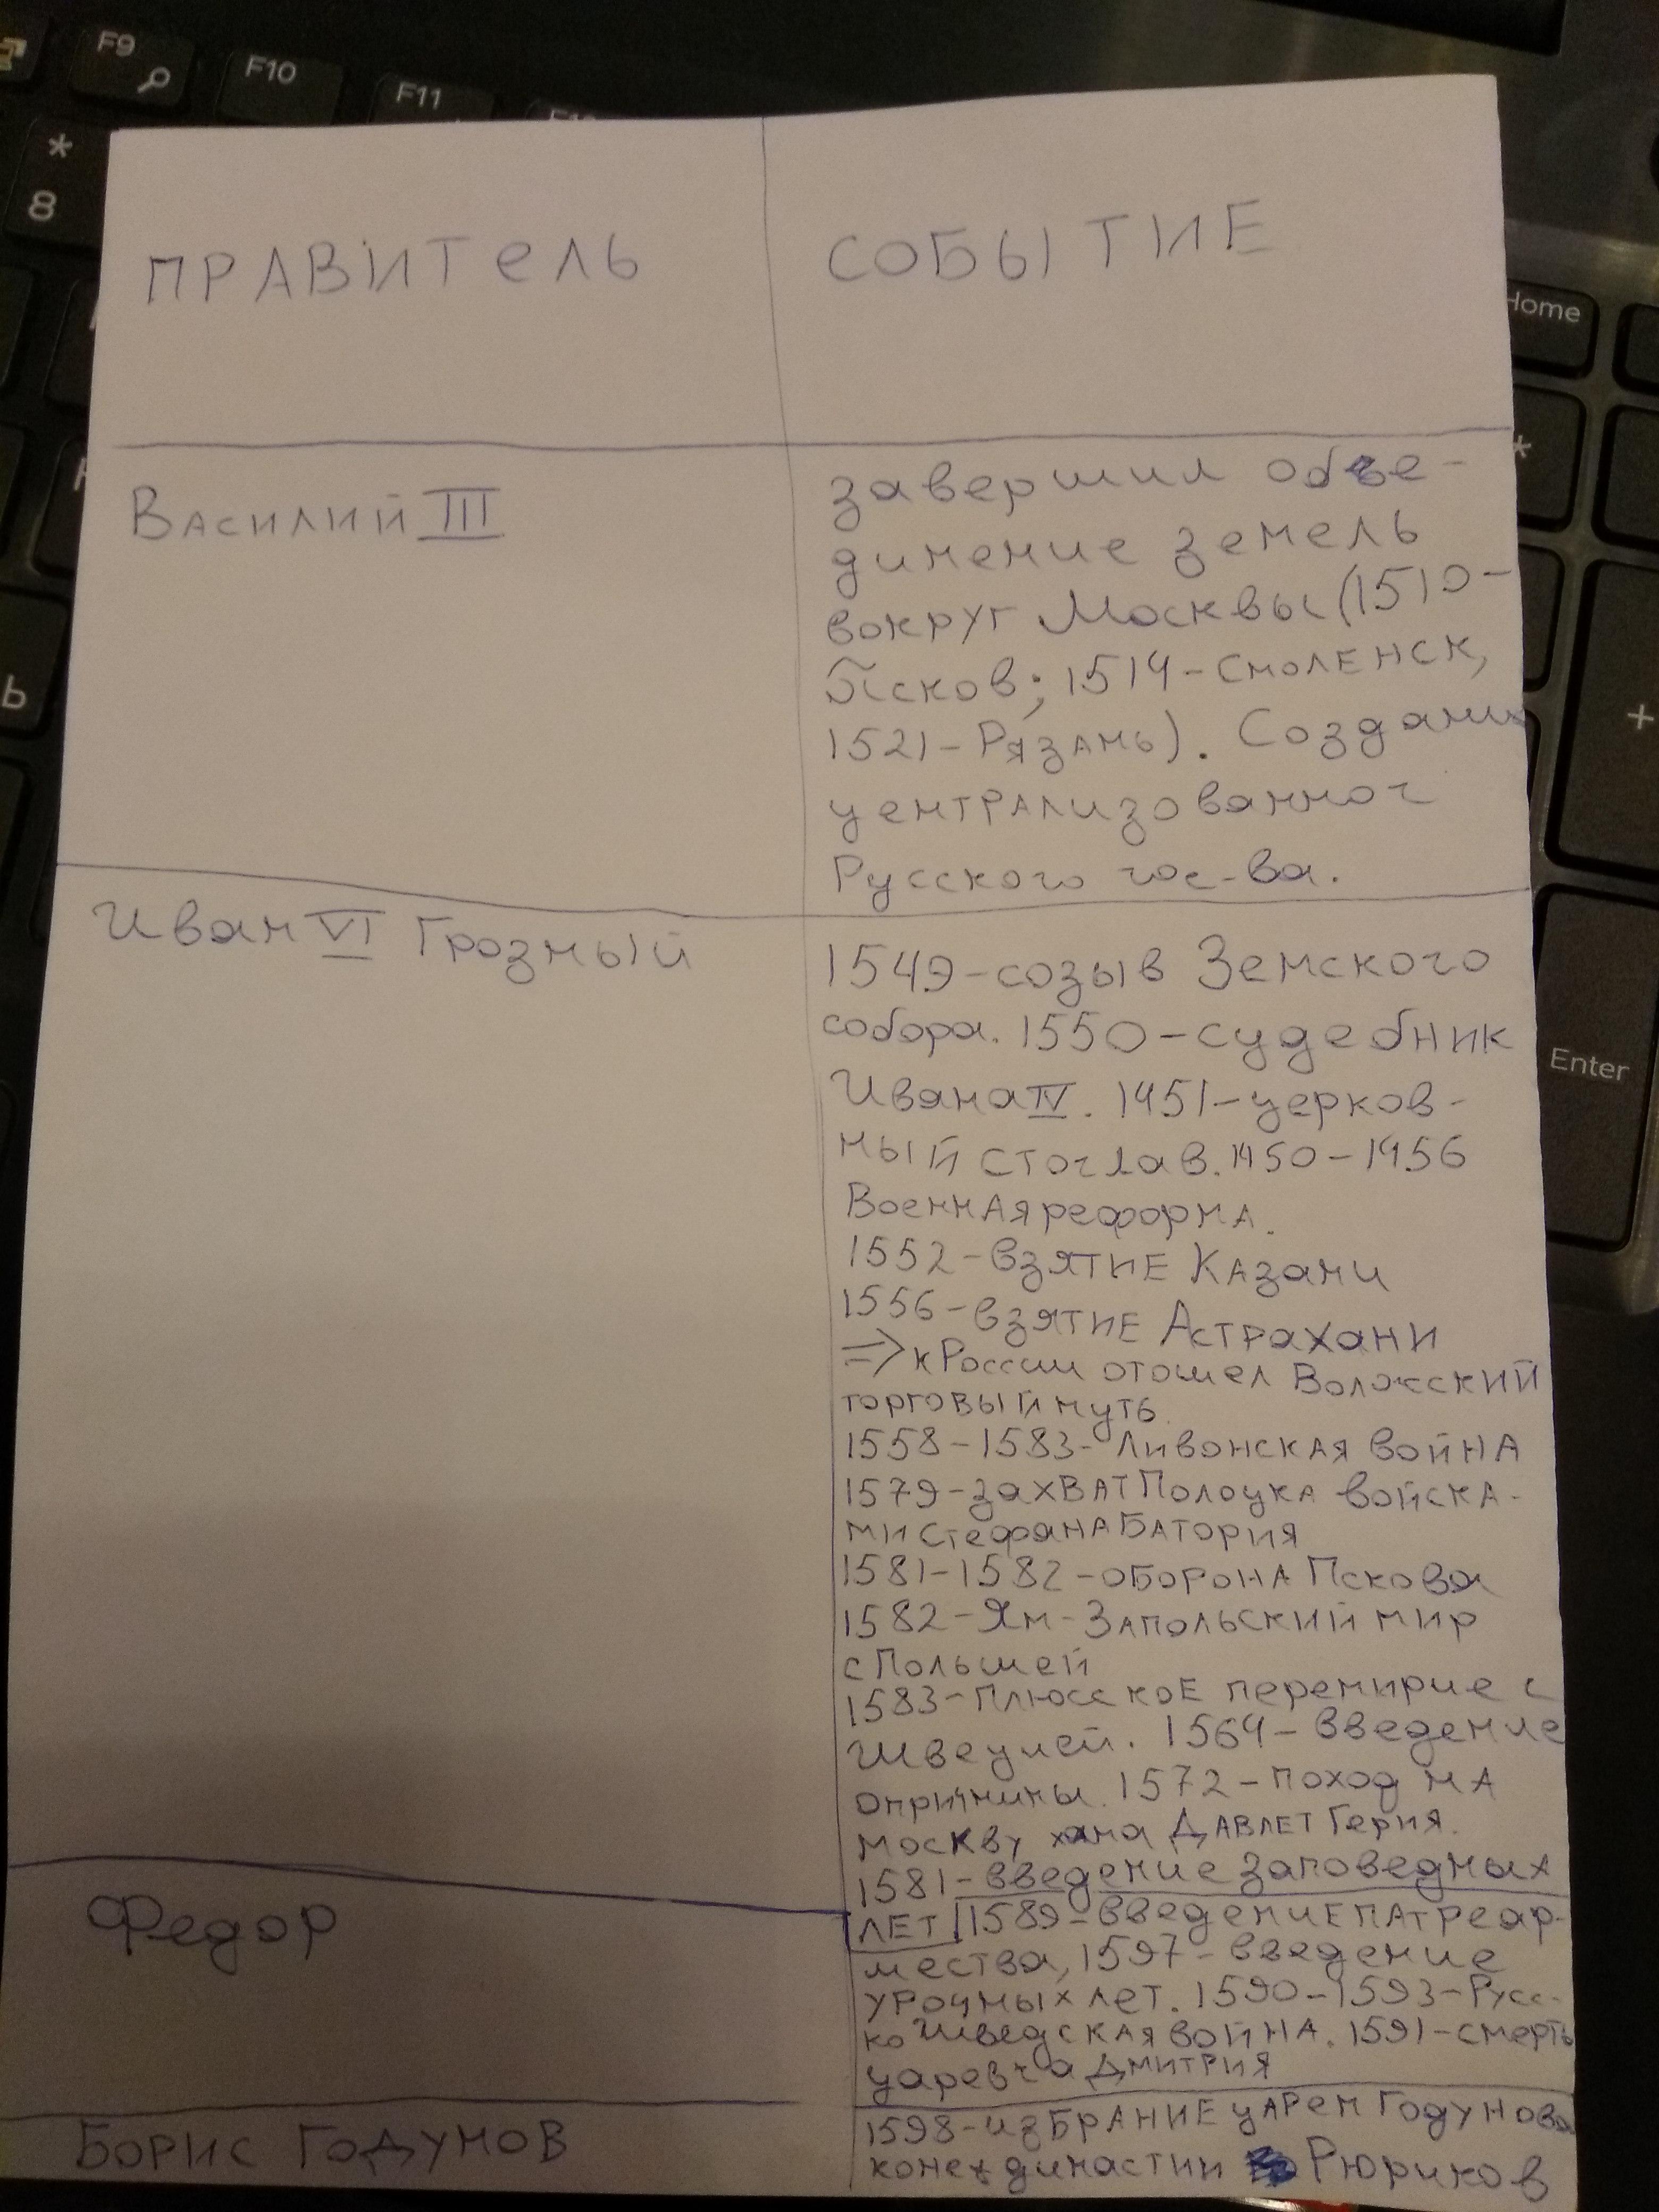 F9
F10
F11
*
8
Home
*
Ь
+
Enter
ПРАВИТеЛЬ
СОБЫТИЕ
Василий III
завершил объе-
динение земель
вокруг Москвы (1510-
Псков; 1514-Смоленск,
1521-Рязань). Создание
централизованног
Русского гос-ва.
Иван VI Грозный
1549-созыв Земского
собора. 1550-судебник
Ивана IV. 1451-церков-
ный стоглав. 1450-1956
Военная реформа.
1552-взятие Казани
1556-взятие Астрахани
=> к России отошел Волжский
торговый путь
1558-1583-Ливонская война
1579-захват Полоцка войска-
ми Стефана Батория
1581-1582-оборона Пскова
1582-Ям-Запольский мир
с Польшей
1583-Плюсское перемирие с
Швецией. 1564-введение
опричнины. 1572-поход на
москву хана Давлет Герия.
1581-введение заповедных
лет
Федор
1589-введение патреар-
шества, 1597-введение
урочных лет. 1590-1593-Русс-
ко Шведская война. 1591-смерть
царевча Дмитрия
Борис Годунов
1598-избрание царем Годунова
конец династии Рюриков